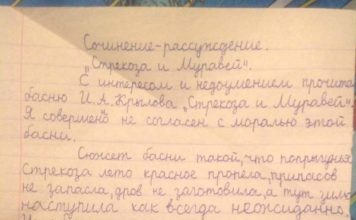 Сочинение-рассуждение.
„Стрекоза и Муравей".
С интересом и недоумением прочита
басню И.А.Крылова „Стрекоза и Муравей"
Я совершено не согласен с моралью этой
басни.
Сюжет басни такой, что попрыгунья
Стрекоза лето красное пропела, припасов
не запасла, дров не заготовила, а тут зима
наступила как всегда неожиданно